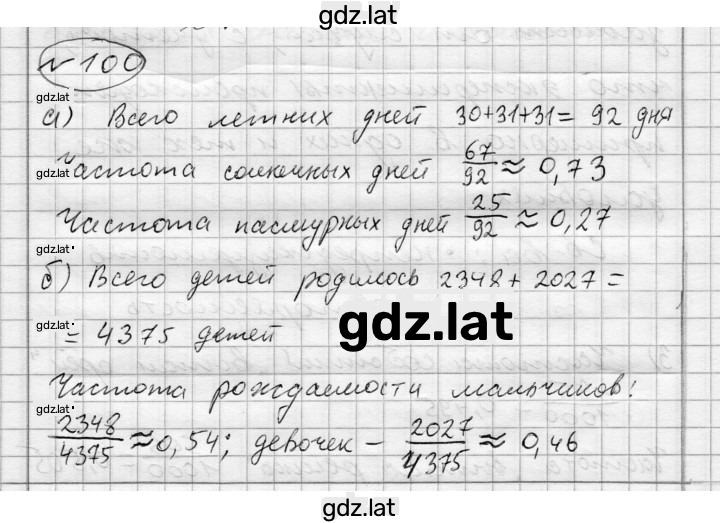 gdz.lat
№100
gdz.lat
а) Всего летних дней 30+31+31= 92 дня
gdz.lat
Частота солнечных дней 67/92 ≈ 0,73
Частота пасмурных дней 25/92 ≈ 0,27
gdz.lat
б) Всего детей родилось 2348+2027=
gdz.lat
gdz.lat
= 4375 детей
Частота рождаемости мальчиков:
gdz.lat
2348/4375 ≈ 0,54; девочек – 2027/4375 ≈ 0,46
gdz.lat
gdz.lat